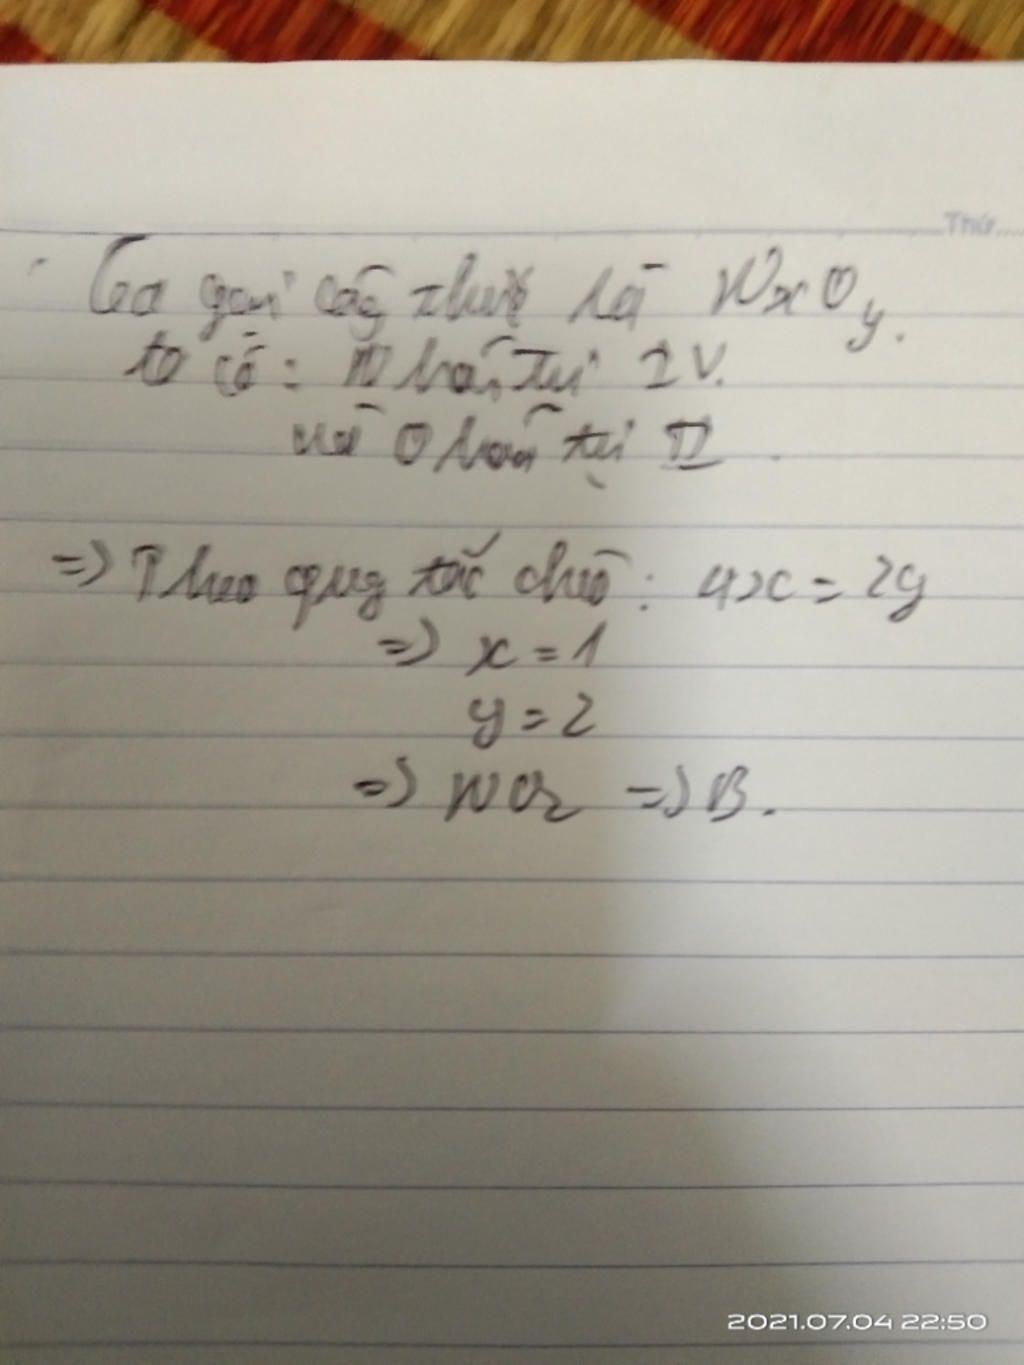 Thứ......
Ta gọi công thức là NxOy.
ta có: N hoá trị IV.
và O hoá trị II.
=> Theo quy tắc chéo: 4x = 2y
=> x = 1
y = 2
=> NO2 => B.
2021.07.04 22:50